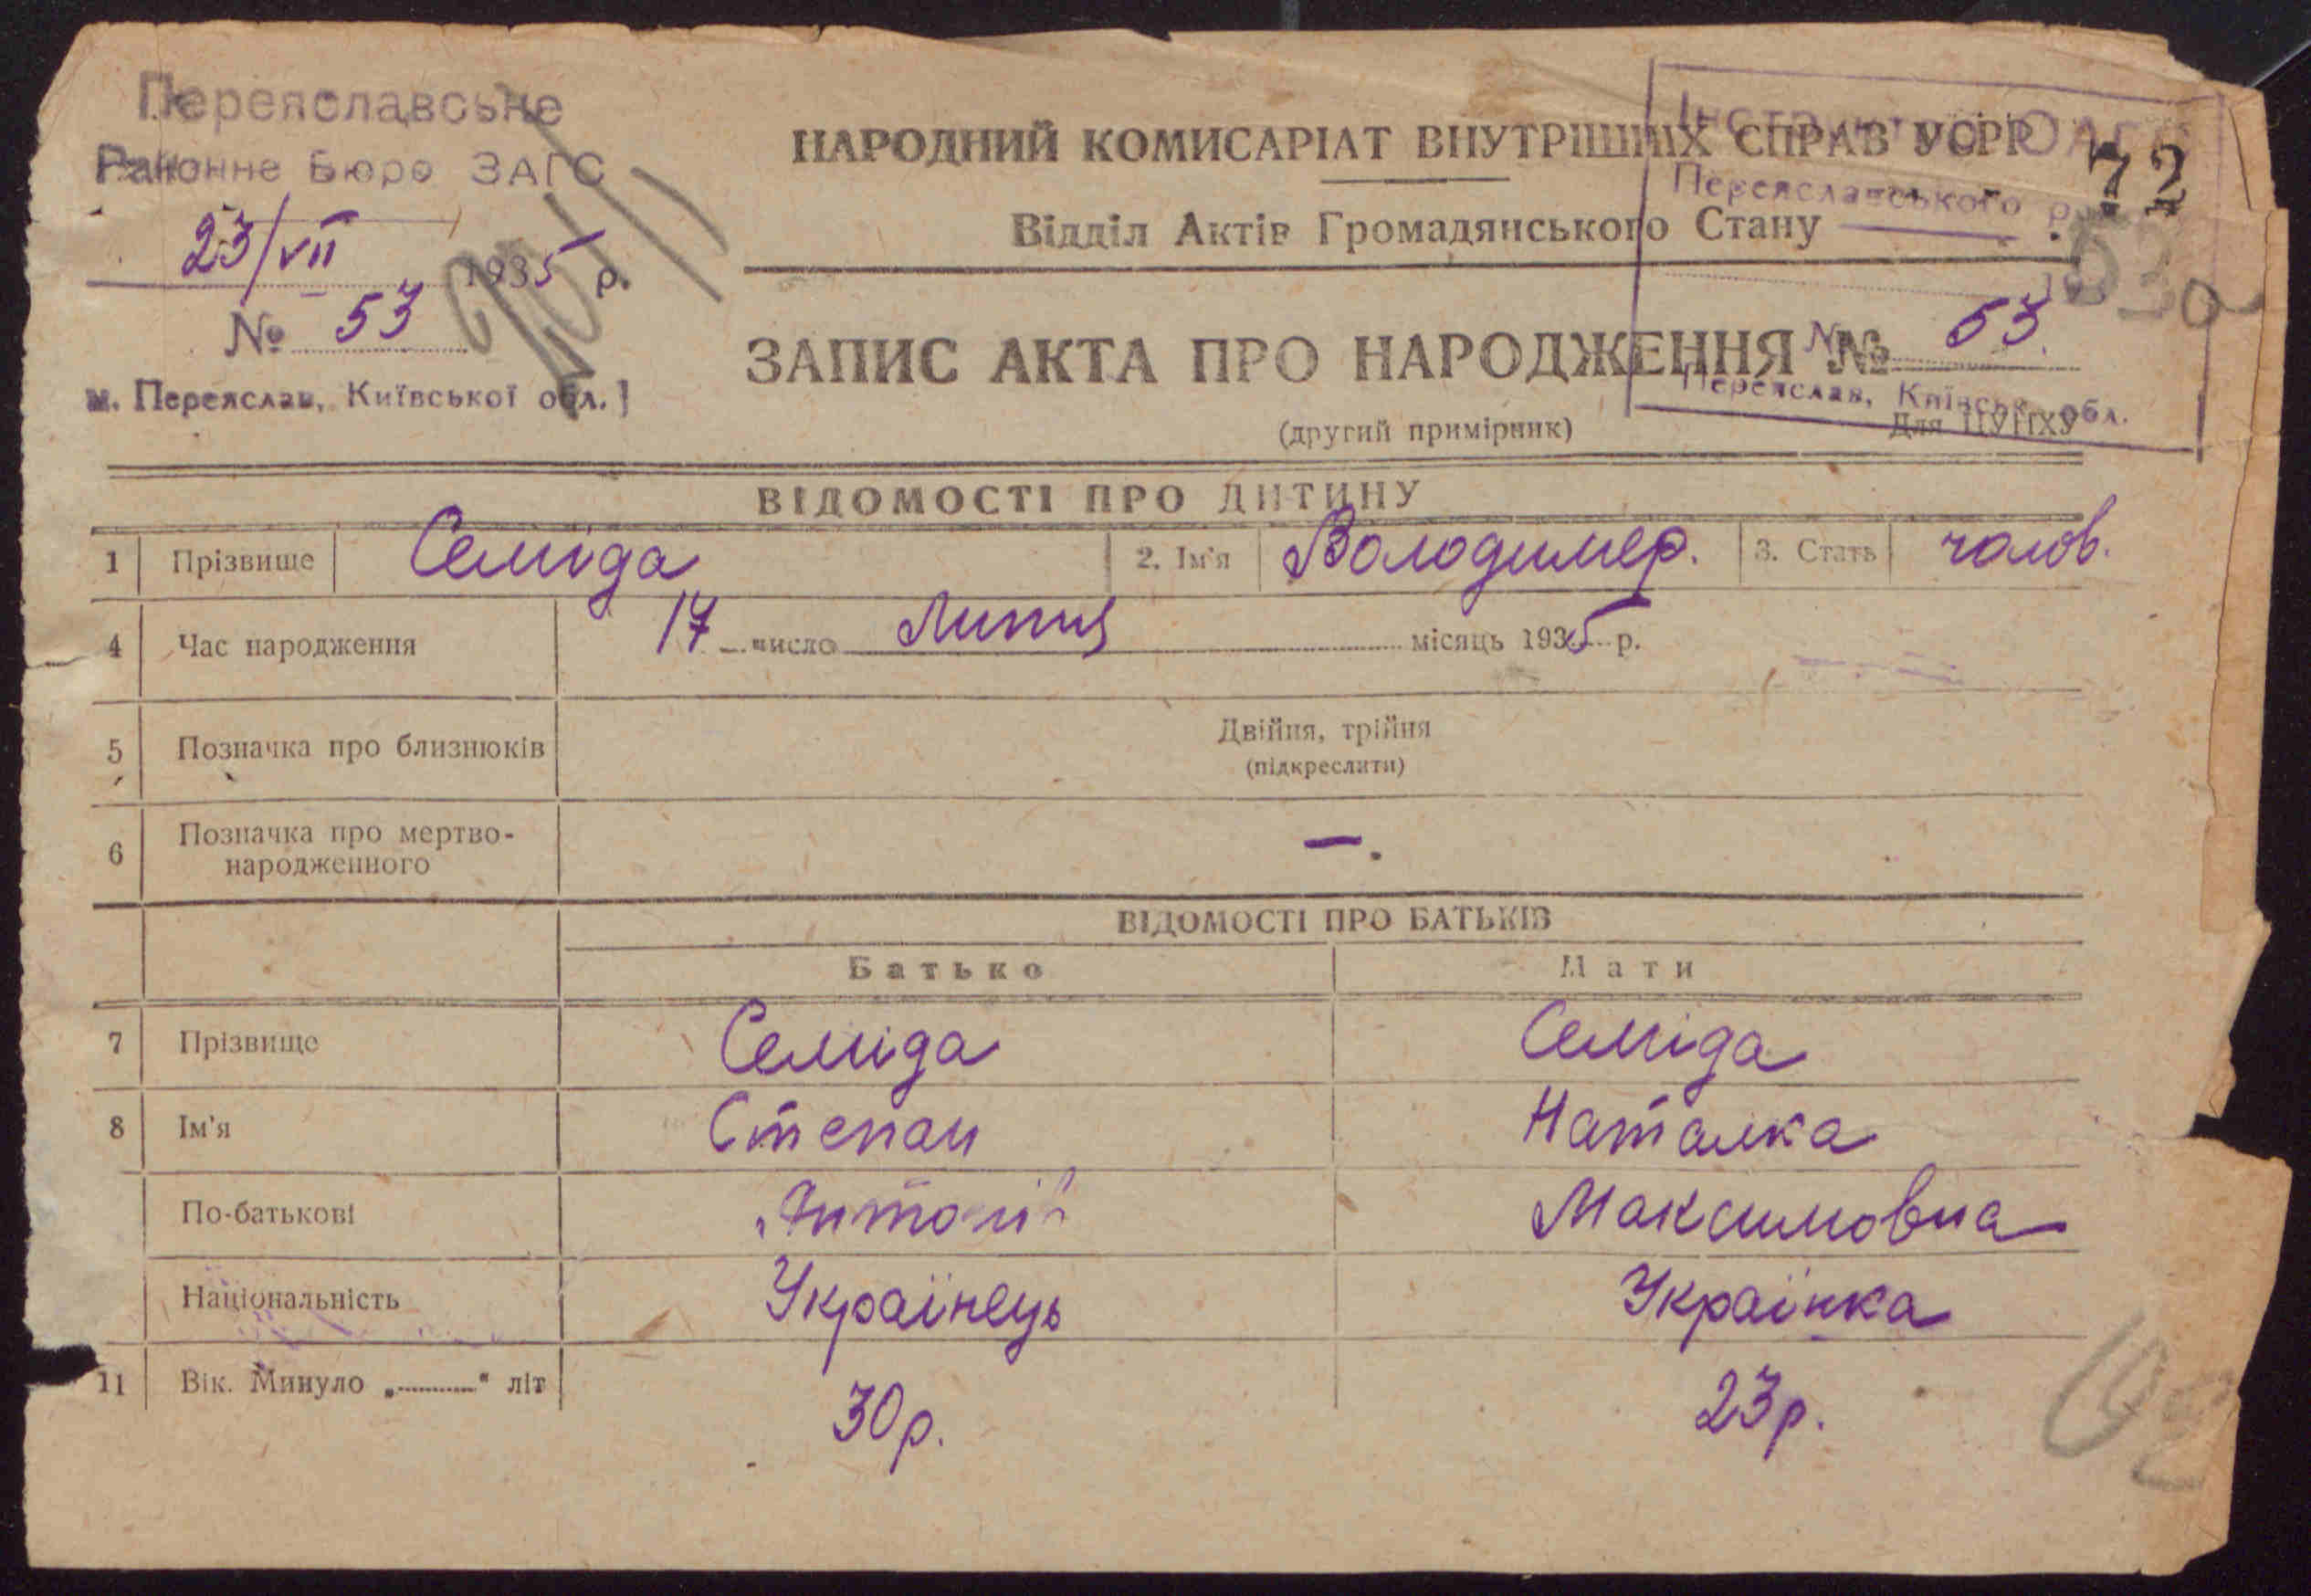 Переяславське
Районне Бюро ЗАГС
23/VII 1935 р.
№ 53
м. Переяслав, Київської обл.
НАРОДНИЙ КОМИСАРІАТ ВНУТРІШНІХ СПРАВ УСРР
72
Переяславського
Відділ Актів Громадянського Стану
ЗАПИС АКТА ПРО НАРОДЖЕННЯ № 53.
Переяслав, Київськ. обл.
(другий примірник)
Для ЦУНХУ
ВІДОМОСТІ ПРО ДИТИНУ
1 Прізвище Семіда 2. Ім'я Володимер. 3. Стать чолов.
4 Час народження 17 число Липня місяць 1935 р.
5 Позначка про близнюків Двійня, трійня
(підкреслити)
6 Позначка про мертво-
народженного —.
ВІДОМОСТІ ПРО БАТЬКІВ
Батько Мати
7 Прізвище Семіда Семіда
8 Ім'я Степан Наталка
По-батькові Максимовна
Національність Українець Українка
11 Вік. Минуло „......" літ 30 р. 23 р.